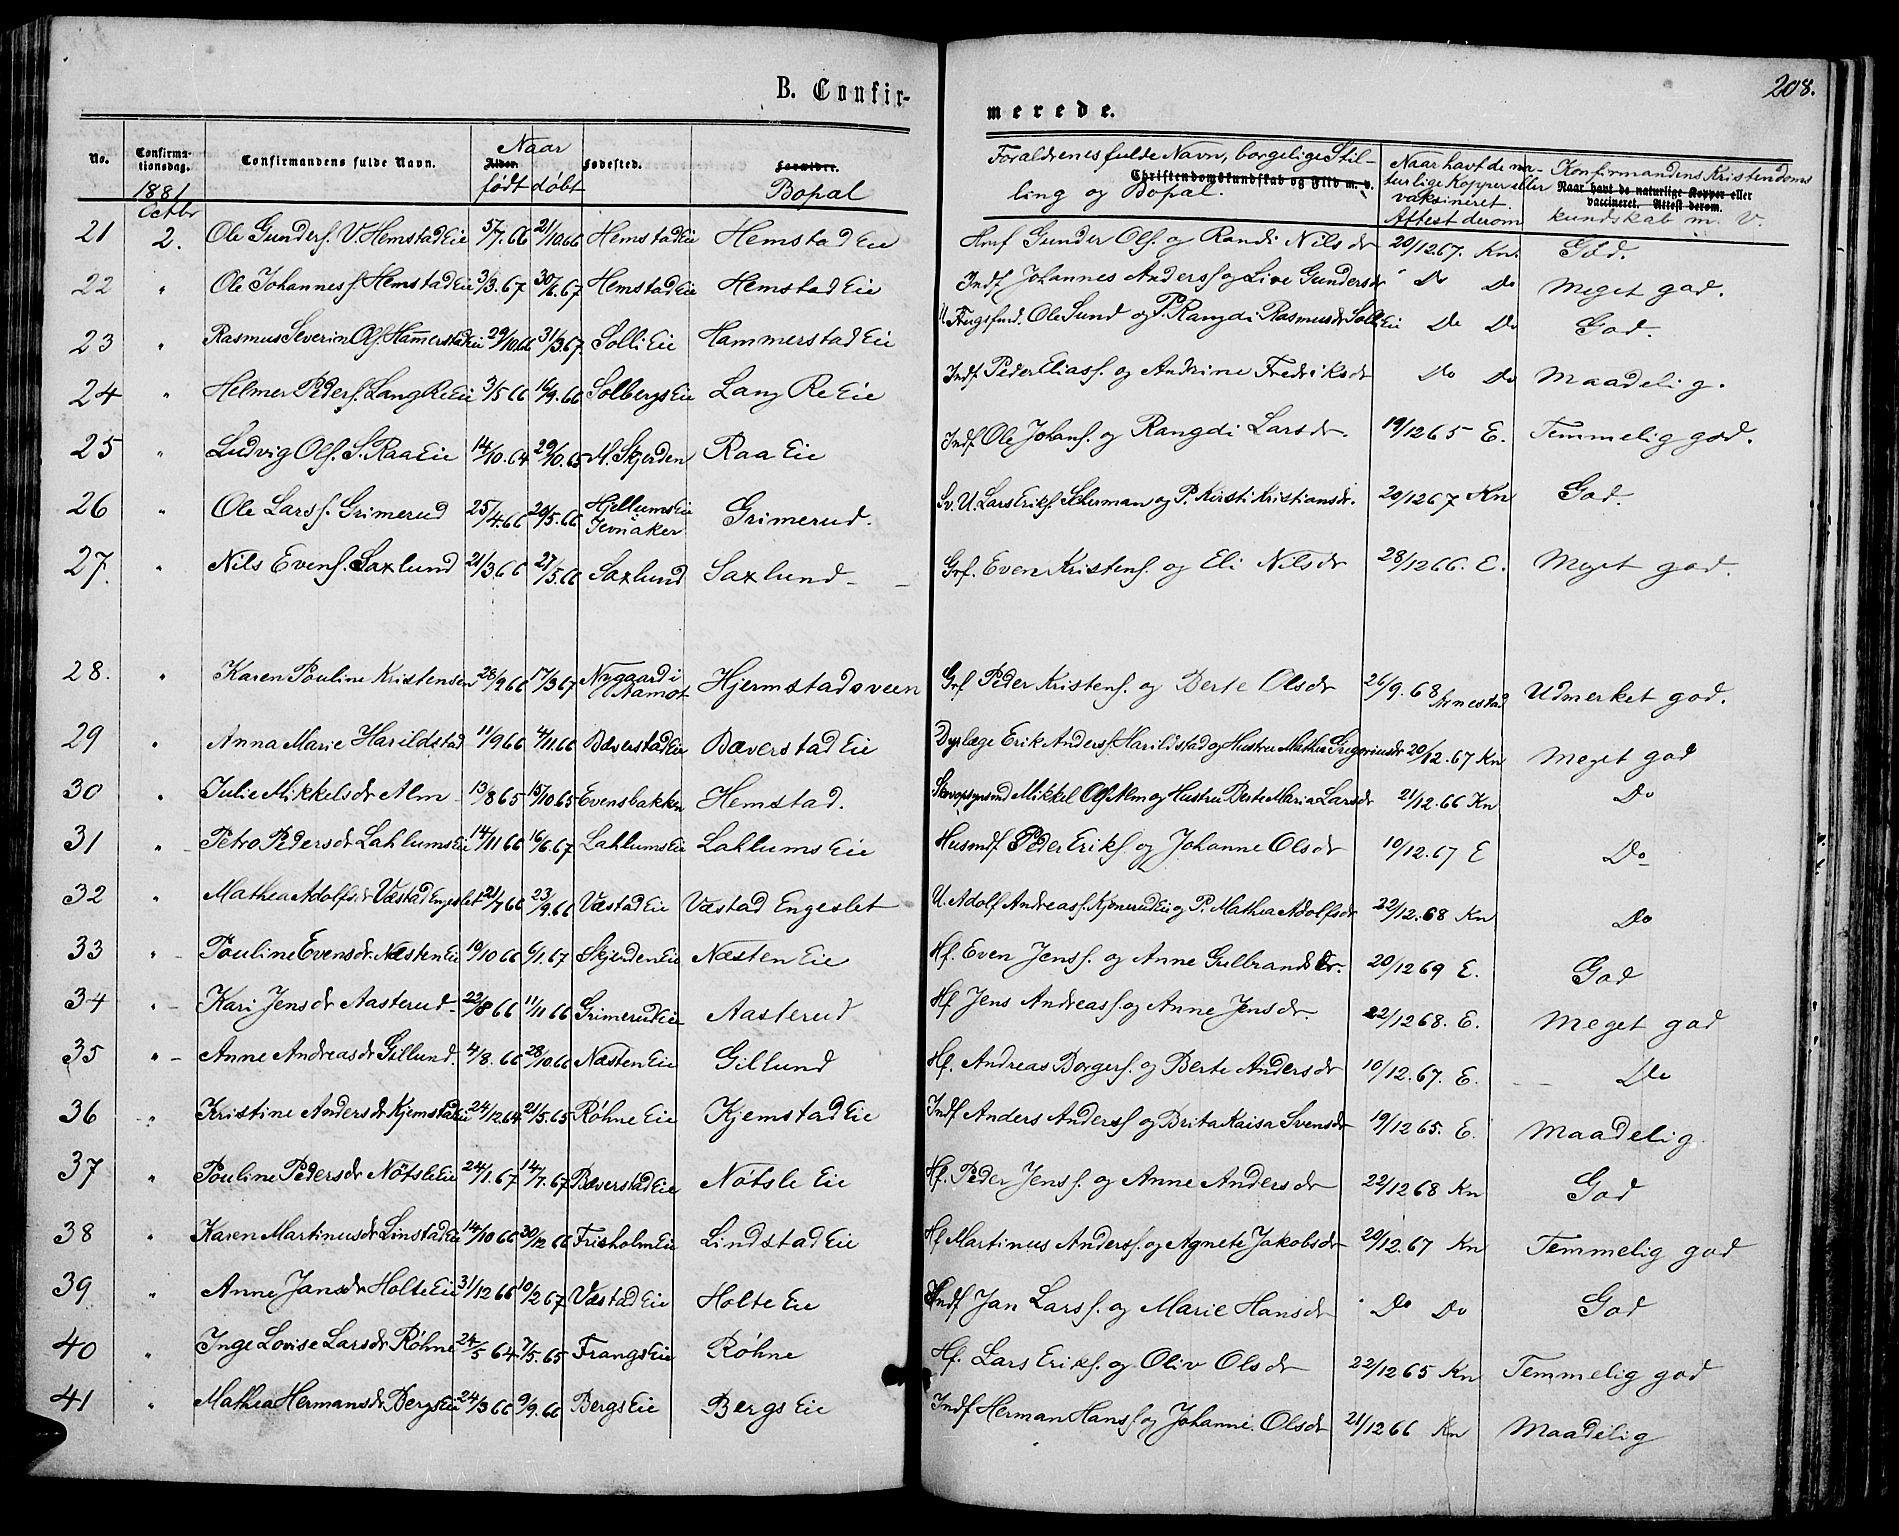 208.
B. Confir- merede.
No. Confirmationsdag. Confirmandens fulde Navn. Naar Alder. født døbt Fødested. Forældre. Bopæl Forældrenes fulde Navn, borgelige Stilling og Bopæl. Christendomskundskab og Flid m. v. Naar havt de naturlige Kopper eller vaksineret. Attest derom Konfirmandens Kristendoms Naar havt de naturlige Kopper eller vaccineret. Attest derom. kundskab m. V.
1881
Octbr
21 2. Ole Gunders. V. Hemstad Eie 5/7.66 21/10.66 Hemstad Eie Hemstad Eie Hmf Gunder Ols. og Randi Nilsdr 20/12 67. Kn. God.
22 " Ole Johanness. Hemstad Eie 3/3.67 30/6.67 Hemstad Eie Hemstad Eie Indf Johannes Anders. og Live Gundersdr Do Do Meget god.
23 " Rasmus Severin Ols. Hammerstad Eie 29/10.66 31/3.67 Solli Eie Hammerstad Eie Ole Sund og P. Rangdi Rasmusdr Solli Eie Do Do God.
24 " Helmer Peders. Lang Re Eie 3/5 66 16/9.66 Solbergs Eie Lang Re Eie Indf Peder Eliass. og Andrine Fredriksdr Do Do Maadelig.
25 " Ludvig Ols. S. Raa Eie 14/10.64 29/10.65 M. Skjerden Raa Eie Indf. Ole Johans. og Rangdi Larsdr. 19/12 65 E. Temmelig god.
26 " Ole Larss. Grimerud 25/4.66 20/5.66 Hjellums Eie Jevnaker Grimerud. Sv. U. Lars Eriks. Selerman og P. Kirsti Kristiansdr. 20/12 67 Kn God.
27. " Nils Evens. Saxlund 21/3 66 27/5.66 Saxlund Saxlund Grf. Even Kristens. og Eli Nilsdr 28/12 66. E. Meget god.
28. " Karen Pouline Kristensen 28/9 66 17/3 67 Nygaard i Aamot Hjermstadsveen Grf Peder Kristens. og Berte Olsdr 26/9. 68 Udmerket god.
29 " Anna Marie Harildstad 11/9 66 4/11.66 Bæverstad Eie Bæverstad Eie Dyrlæge Erik Anders. Harildstad og Hustru Mathea Gregoriusdr 20/12.67 Kn Meget god
30 " Julie Mikkelsdr Alm 13/8 65 15/10 65 Evensbakken Hemstad. Mikkel Ols. Alm og Hustru Berte Maria Larsdr 21/12.66 Kn Do
31 " Petra Pedersdr Lahlums Eie 14/11 66 16/6.67 Lahlums Eie Lahlums Eie Husmdf Peder Eriks. og Johanne Olsdr 10/12.67 E Do
32 " Mathea Adolfsdr Væstad Engeslet 21/7 66 23/9.66 Væstad Eie Væstad Engeslet U. Adolf Andreass. Kjønerud Eie og P. Mathea Adolfsdr 22/12.68 Kn Do
33 " Pouline Evensdr. Næsten Eie 19/10 66 6/1.67 Skjerden Eie Næsten Eie Hf. Even Jenss. og Anne Gulbrandsdr. 20/12 69 E. God
34 " Kari Jensdr Aasterud 22/8 66 11/11 66 Grimerud Eie Aasterud Hf Jens Andreass. og Anne Jensdr. 22/12 68. E. Meget god
35 " Anne Andreasdr Gillund. 4/8. 66 28/10.66 Næsten Eie Gillund Hf. Andreas Borgers. og Berte Andersdr 10/12. 67. E. Do
36 " Kristine Andersdr Kjemstad Eie 24/12.64 21/5.65 Røhne Eie Kjemstad Eie Indf Anders Anders. og Brita Kaisa Svensdr 19/12 65. E. Maadelig.
37 " Pouline Pedersdr Nøtsle Eie 24/1.67 14/7.67 Bæverstad Eie Nøtsle Eie Hf. Peder Jenss. og Anne Andersdr 22/12 68 Kn God
38 " Karen Martinusdr Linstad Eie 14/10 66 30/12 66 Frisholm Eie Lindstad Eie Hf Martinus Anders. og Agnete Jakobsdr 20/12.67 Kn Temmelig god
39 " Anne Jansdr Holte Eie 31/12 66 10/2 67 Væstad Eie Holte Eie Indf Jan Larss. og Marie Hansdr Do Do God
40 " Inge Lovise Larsdr Røhne 24/5 64 7/5.65 Frangs Eie Røhne Hf. Lars Eriks. og Oliv Olsdr 22/12 65 Kn Temmelig god
41 " Mathea Hermansdr Bergs Eie 24/3 66 9/9.66 Bergs Eie Bergs Eie Indf Herman Hanss. og Johanne. Olsdr 21/12 66 Kn Maadelig